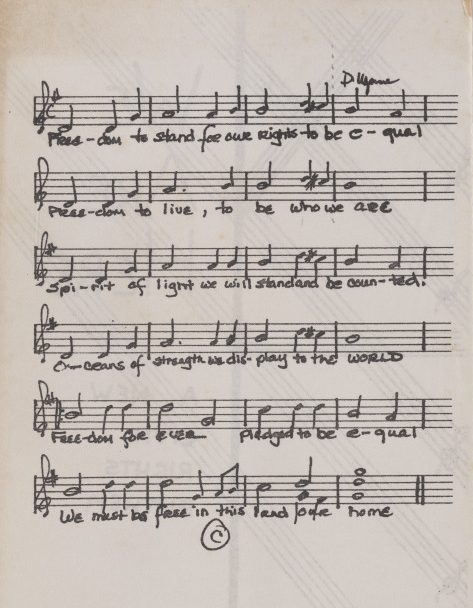 Free-dom to stand for our rights to be e-qual
Free-dom to live, to be who we are
Spi-rit of light we will stand and be coun-ted.
O-ceans of strength we dis-play to the WORLD
Free-dom for ever Pledged to be e-qual
We must be free in this land our home
©